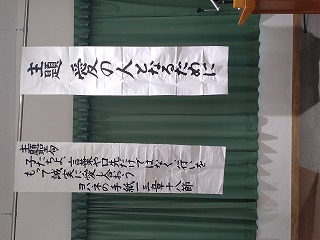 主題 愛の人となるために
主題聖句
子たちよ、言葉や口先だけではなく、行いを
もって誠実に愛し合おう。
ヨハネの手紙一三章十八節